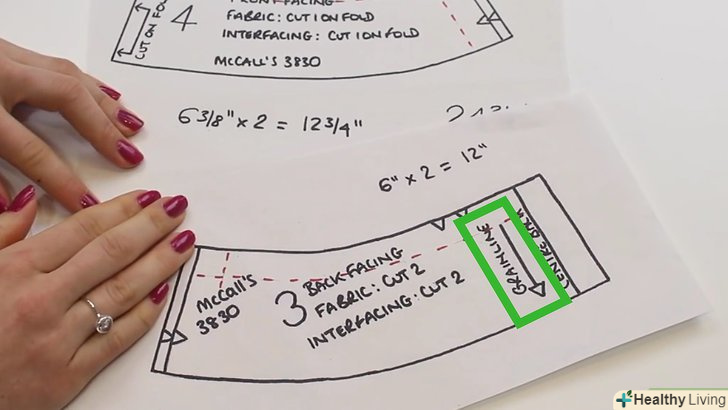 CUT ON FO
4
FRONT FACING
FABRIC: CUT 1 ON FOLD
INTERFACING: CUT 1 ON FOLD
MCCALL'S 3830
6 3/8" x 2 = 12 3/4"
6" x 2 = 12"
McCALL'S
3830
3
BACK FACING
FABRIC: CUT 2
INTERFACING: CUT 2
GRAINLINE
CENTRE BACK
+ Healthy Living